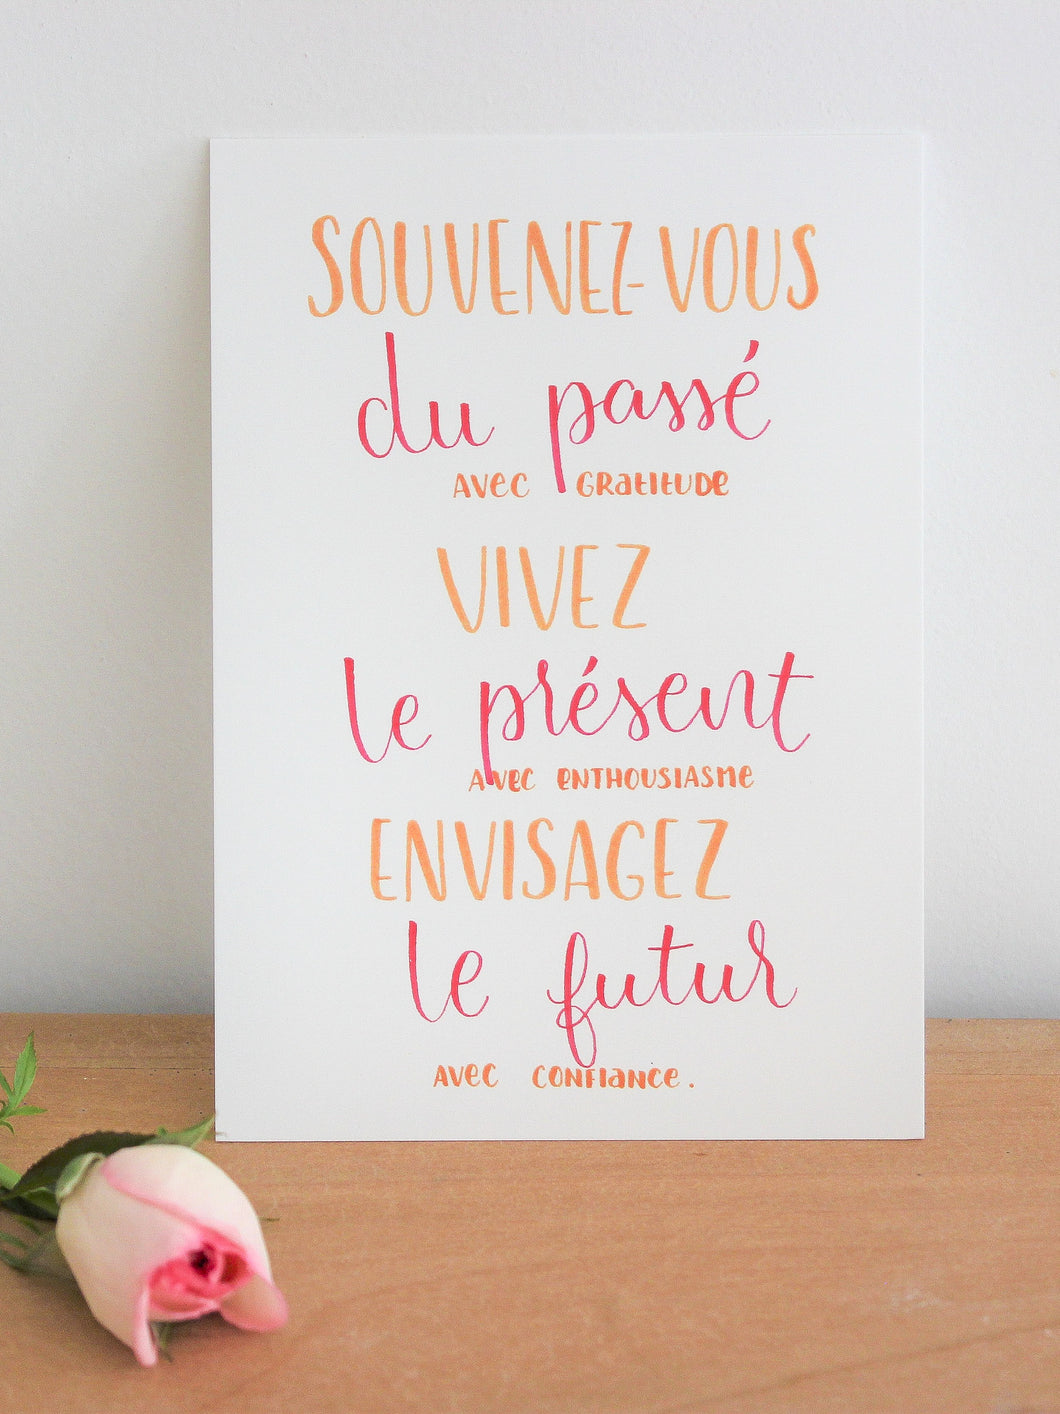 SOUVENEZ-VOUS
du passé
AVEC GRATITUDE
VIVEZ
le présent
AVEC ENTHOUSIASME
ENVISAGEZ
le futur
AVEC CONFIANCE.